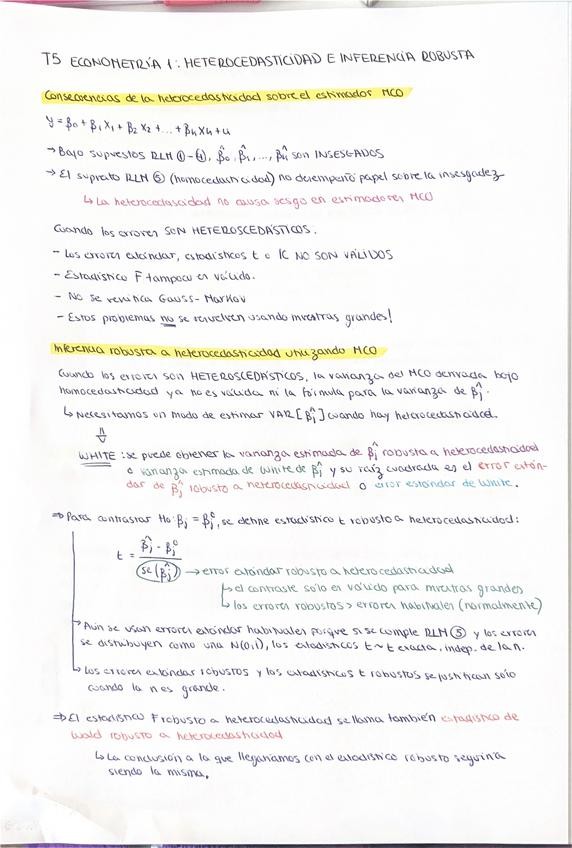 T5 ECONOMETRÍA I: HETEROCEDASTICIDAD E INFERENCIA ROBUSTA
Consecuencias de la heterocedasticidad sobre el estimador MCO
y = β₀ + β₁X₁ + β₂X₂ + ... + βₖXₖ + u
→ Bajo supuestos RLM ①-④, β̂₀, β̂₁, ..., β̂ₖ son INSESGADOS
→ El supuesto RLM ⑤ (homocedasticidad) no desempeñó papel sobre la insesgadez
↳ La heterocedasticidad no causa sesgo en estimadores MCO
Cuando los errores SON HETEROSCEDÁSTICOS.
- Los errores estándar, estadísticos t e IC NO SON VÁLIDOS
- Estadístico F tampoco es válido.
- No se verifica Gauss-Markov
- Estos problemas no se resuelven usando muestras grandes!
Inferencia robusta a heterocedasticidad utilizando MCO
Cuando los errores son HETEROSCEDÁSTICOS, la varianza del MCO derivada bajo
homocedasticidad ya no es válida ni la fórmula para la varianza de β̂ⱼ.
↳ Necesitamos un modo de estimar VAR[β̂ⱼ] cuando hay heterocedasticidad.
WHITE: se puede obtener la varianza estimada de β̂ⱼ robusta a heterocedasticidad
o varianza estimada de White de β̂ⱼ y su raíz cuadrada es el error están-
dar de β̂ⱼ robusto a heterocedasticidad o error estándar de White.
⇒ Para contrastar H₀: βⱼ = βⱼ⁰, se define estadístico t robusto a heterocedasticidad:
t = (β̂ⱼ - βⱼ⁰) / se(β̂ⱼ) → error estándar robusto a heterocedasticidad
↳ el contraste solo es válido para muestras grandes
↳ los errores robustos > errores habituales (normalmente)
→ Aún se usan errores estándar habituales porque si se cumple RLM ⑤ y los errores
se distribuyen como una N(0,1), los estadísticos t ~ t exacta, indep. de la n.
↳ Los errores estándar robustos y los estadísticos t robustos se justifican solo
cuando la n es grande.
⇒ El estadístico F robusto a heterocedasticidad se llama también estadístico de
Wald robusto a heterocedasticidad
↳ La conclusión a la que llegaríamos con el estadístico robusto seguiría
siendo la misma.